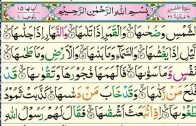 بِسْمِ اللّٰهِ الرَّحْمٰنِ الرَّحِيْمِ
وَالشَّمْسِ وَضُحٰىهَا وَالْقَمَرِ اِذَا تَلٰىهَا وَالنَّهَارِ اِذَا جَلّٰىهَا
وَالَّيْلِ اِذَا يَغْشٰىهَا وَالسَّمَآءِ وَمَا بَنٰىهَا وَالْاَرْضِ وَمَا طَحٰىهَا
وَنَفْسٍ وَّمَا سَوّٰىهَا فَاَلْهَمَهَا فُجُوْرَهَا وَتَقْوٰىهَا قَدْ
اَفْلَحَ مَنْ زَكّٰىهَا وَقَدْ خَابَ مَنْ دَسّٰىهَا كَذَّبَتْ ثَمُوْدُ
بِطَغْوٰىهَا اِذِ انْۢبَعَثَ اَشْقٰىهَا فَقَالَ لَهُمْ رَسُوْلُ اللّٰهِ